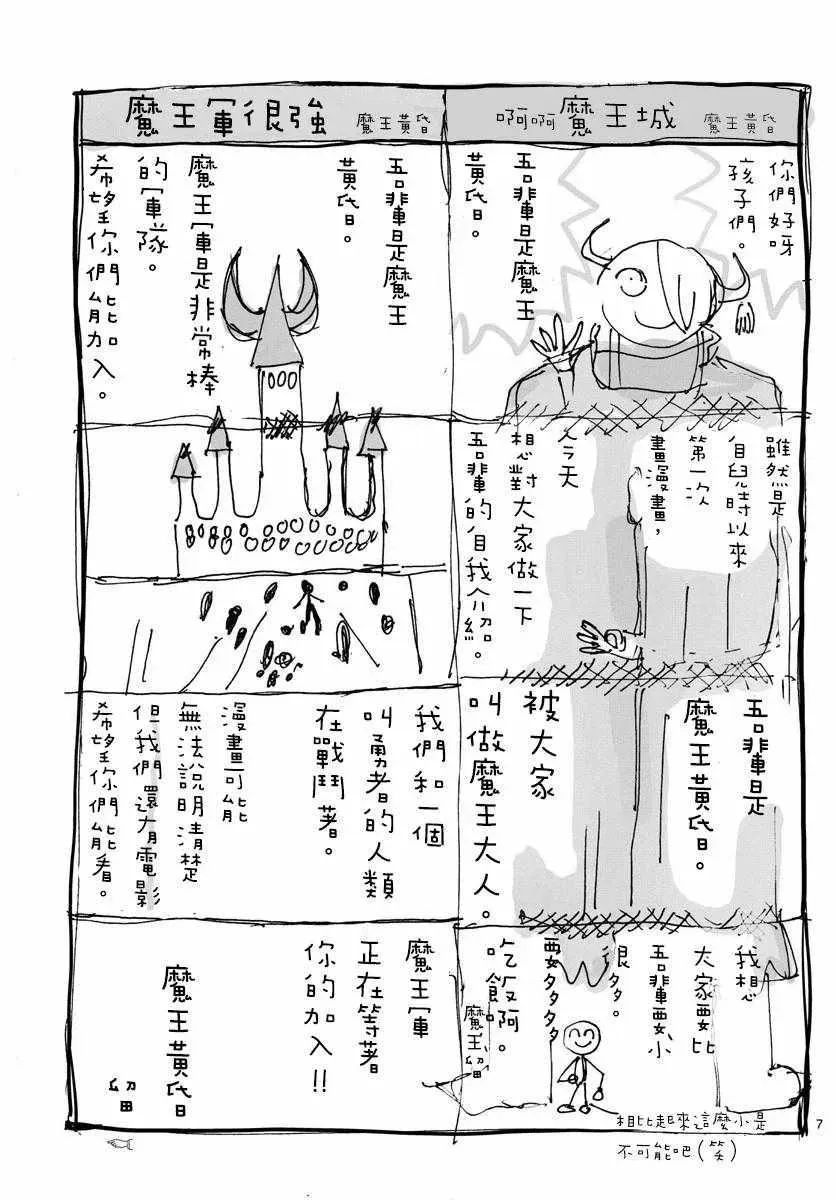 啊啊魔王城 魔王黃昏
你們好呀
孩子們。
吾輩是魔王
黃昏。
雖然是
自兒時以來
第一次
畫漫畫，
今天
想對大家做一下
吾輩的自我介紹。
吾輩是
魔王黃昏。
被大家
叫做魔王大人。
我想
大家要比
吾輩要小
很多。
要多多多多
吃飯啊。
魔王留
相比起來這麼小是
不可能吧(笑)
魔王軍很強 魔王黃昏
吾輩是魔王
黃昏。
魔王軍是非常棒
的軍隊。
希望你們能加入。
我們和一個
叫勇者的人類
在戰鬥著。
漫畫可能
無法說明清楚
但我們還有電影
希望你們能看。
魔王軍
正在等著
你的加入!!
魔王黃昏
留
7